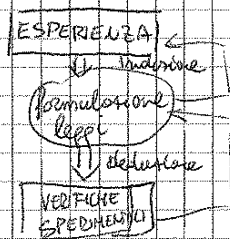 ESPERIENZA
Induzione
formulazione
leggi
deduzione
VERIFICHE
SPERIMENTALI